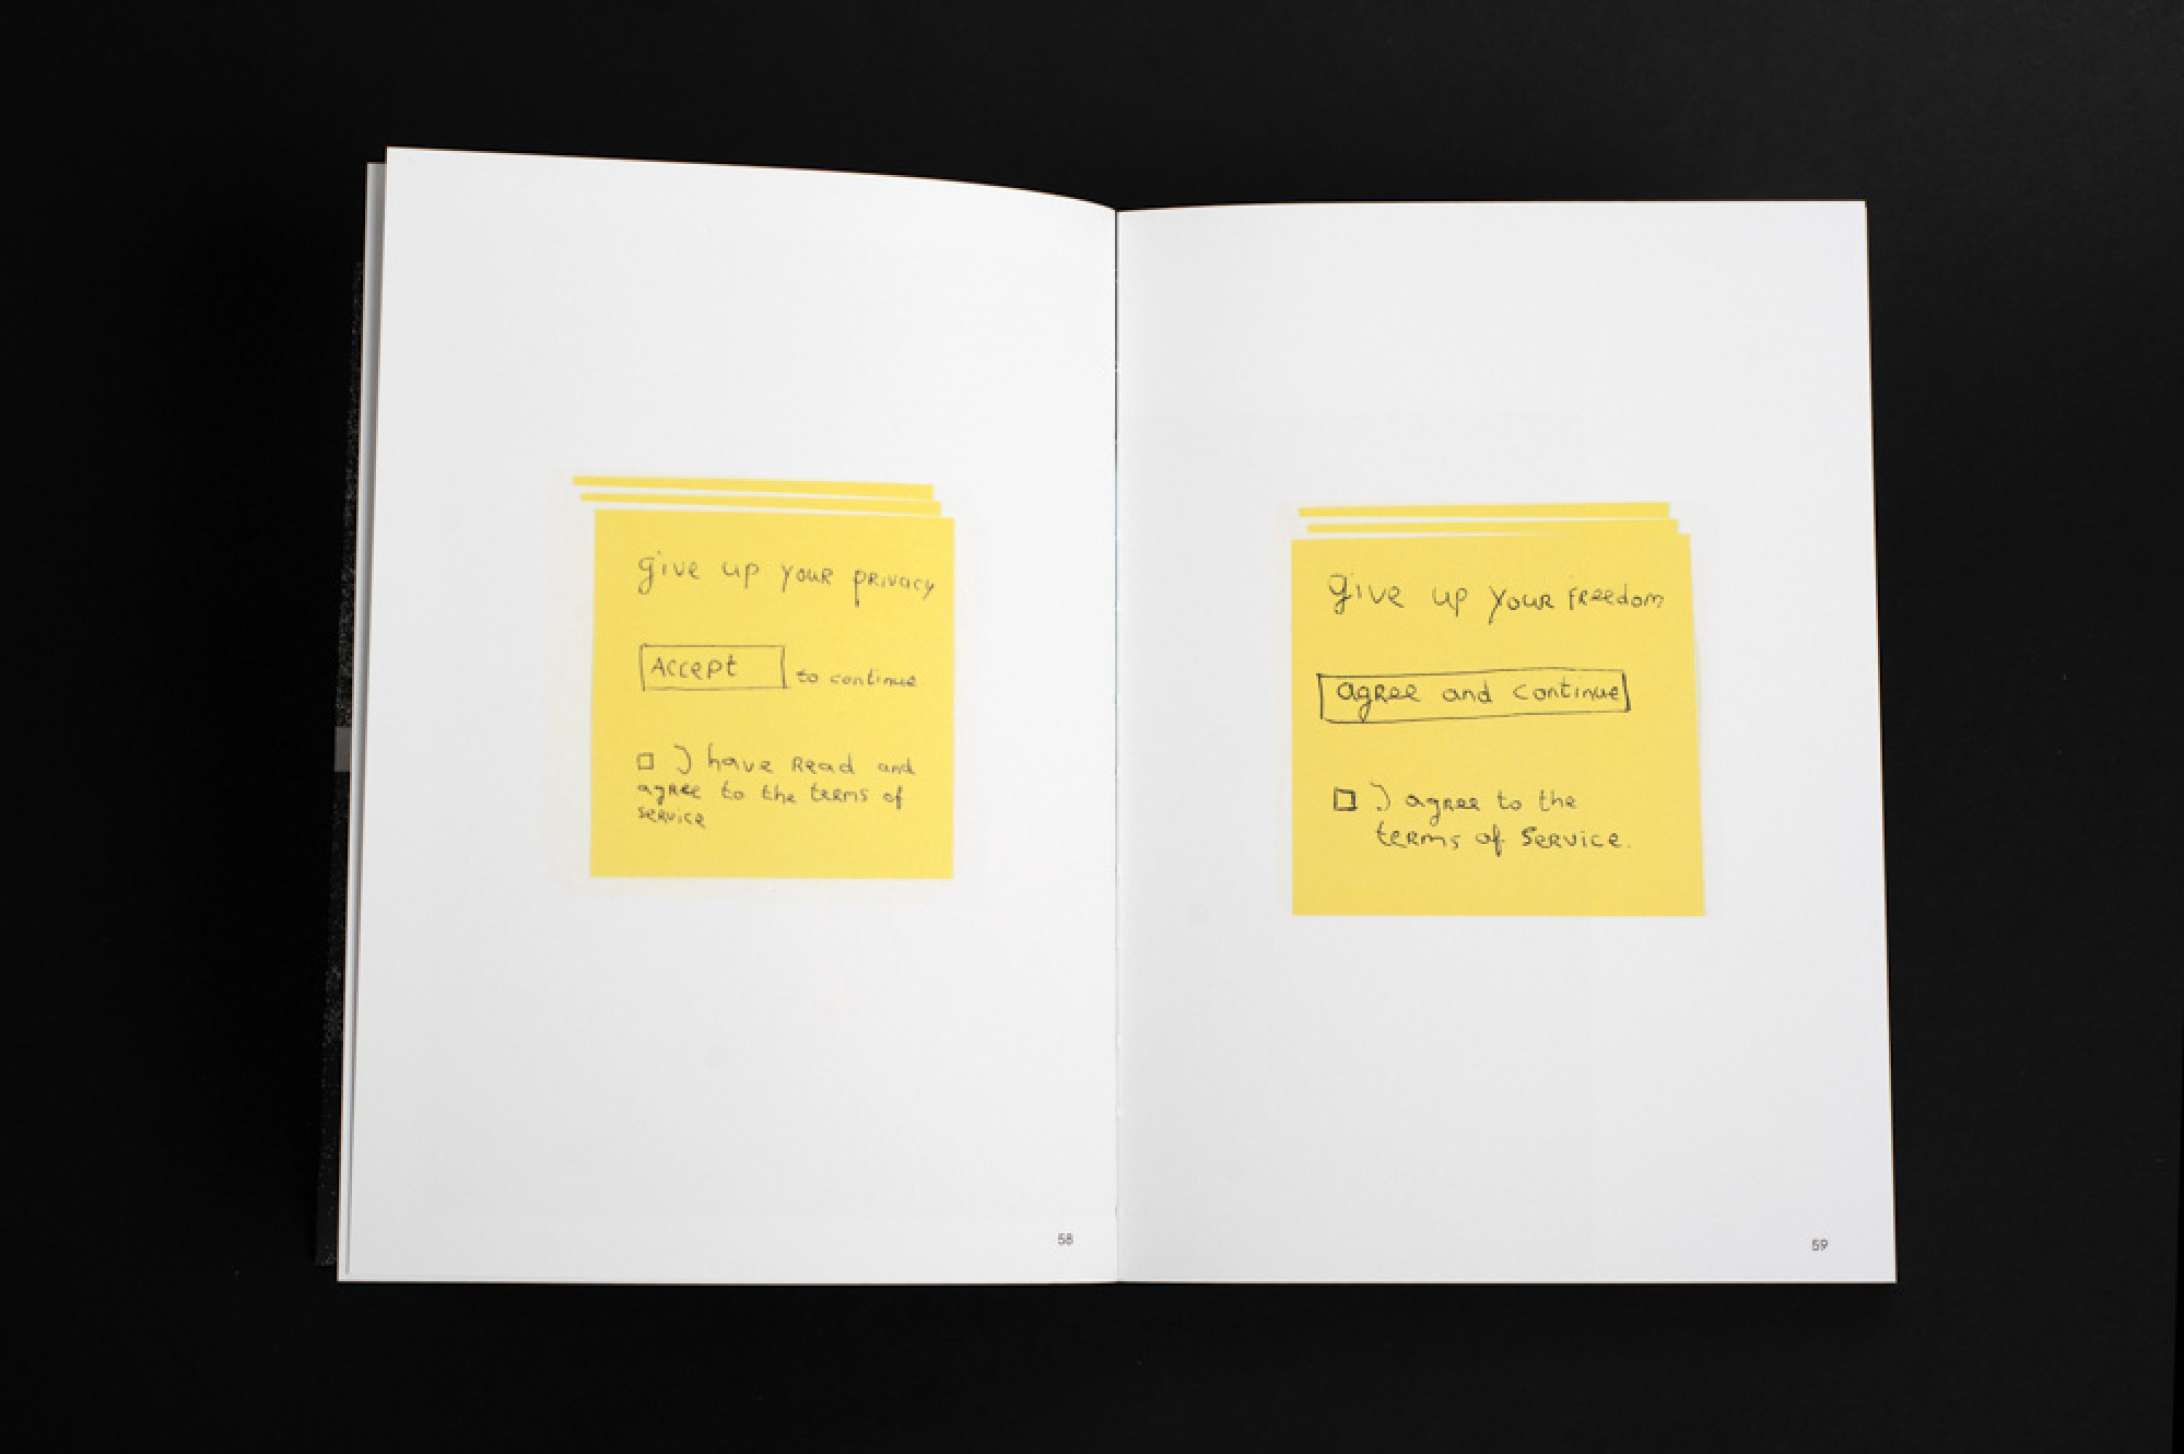 give up your privacy
Accept to continue
I have read and
agree to the terms of
service
58
give up your freedom
agree and continue
I agree to the
terms of service.
59